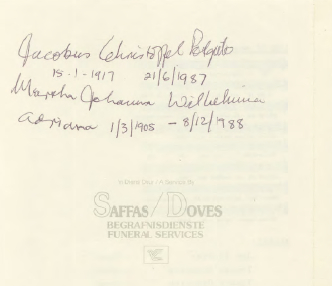 Jacobus Christoffel Potgieter
15-1-1917 21/6/1987
Martha Johanna Wilhelmina
Adriana 1/3/1905 - 8/12/1988
SAFFAS / DOVES
BEGRAFNISDIENSTE
FUNERAL SERVICES